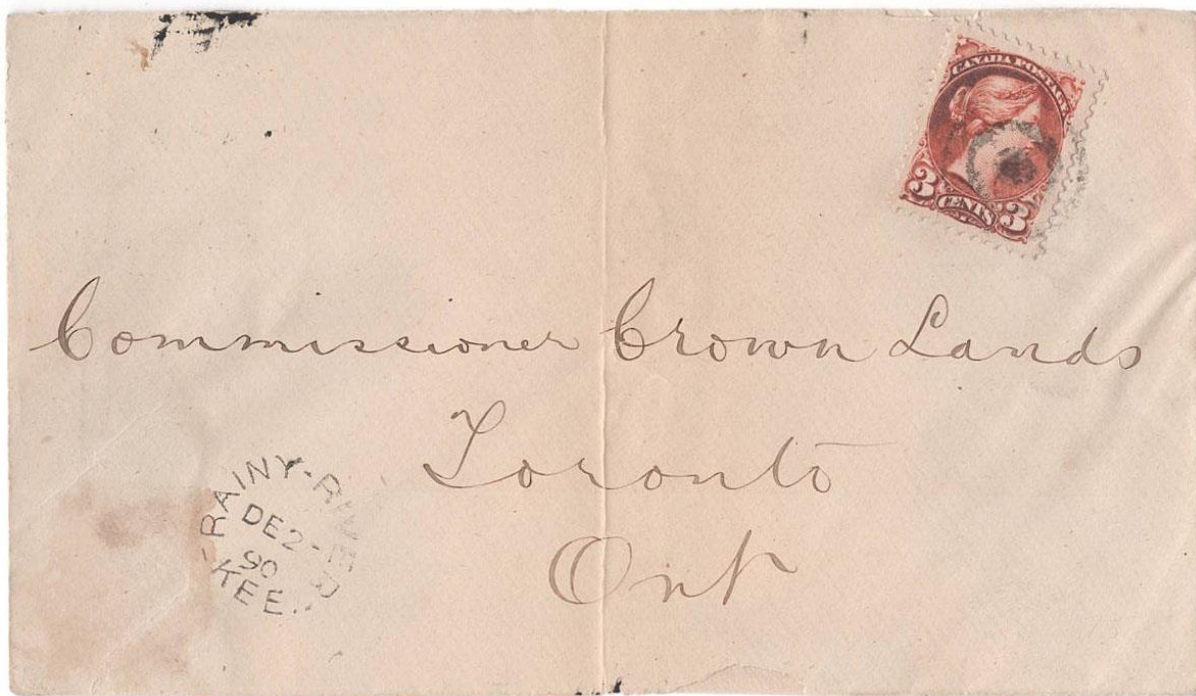 CANADA POSTAGE
3 CENTS 3
Commissioner Crown Lands
Toronto
Ont
RAINY-RIVER
DE 2
90
KEE.